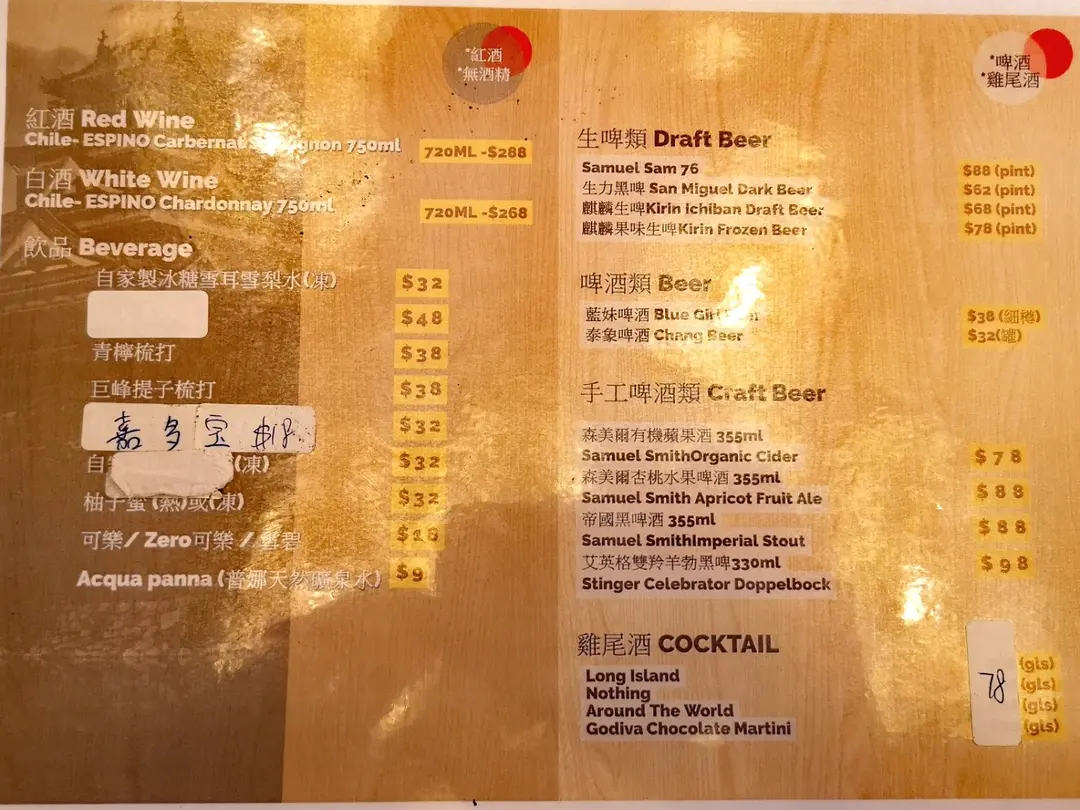 *紅酒
*無酒精
紅酒 Red Wine
Chile- ESPINO Carbernat 750ml 720ML -$288
白酒 White Wine
Chile- ESPINO Chardonnay 750ml 720ML -$268
飲品 Beverage
自家製冰糖雪耳雪梨水(凍) $32
$48
青檸梳打 $38
巨峰提子梳打 $38
嘉多宝 $18 $32
自 (凍) $32
柚子蜜 (熱)或(凍) $32
可樂 / Zero可樂 / 雪碧 $18
Acqua panna (普娜天然礦泉水) $9
*啤酒
*雞尾酒
生啤類 Draft Beer
Samuel Sam 76 $88 (pint)
生力黑啤 San Miguel Dark Beer $62 (pint)
麒麟生啤Kirin Ichiban Draft Beer $68 (pint)
麒麟果味生啤Kirin Frozen Beer $78 (pint)
啤酒類 Beer
藍妹啤酒 Blue Girl Beer $38 (細樽)
泰象啤酒 Chang Beer $32(罐)
手工啤酒類 Craft Beer
森美爾有機蘋果酒 355ml
Samuel SmithOrganic Cider $78
森美爾杏桃水果啤酒 355ml
Samuel Smith Apricot Fruit Ale $88
帝國黑啤酒 355ml
Samuel SmithImperial Stout $88
艾英格雙羚羊勃黑啤330ml $98
Stinger Celebrator Doppelbock
雞尾酒 COCKTAIL
Long Island (gls)
Nothing 78 (gls)
Around The World (gls)
Godiva Chocolate Martini (gls)